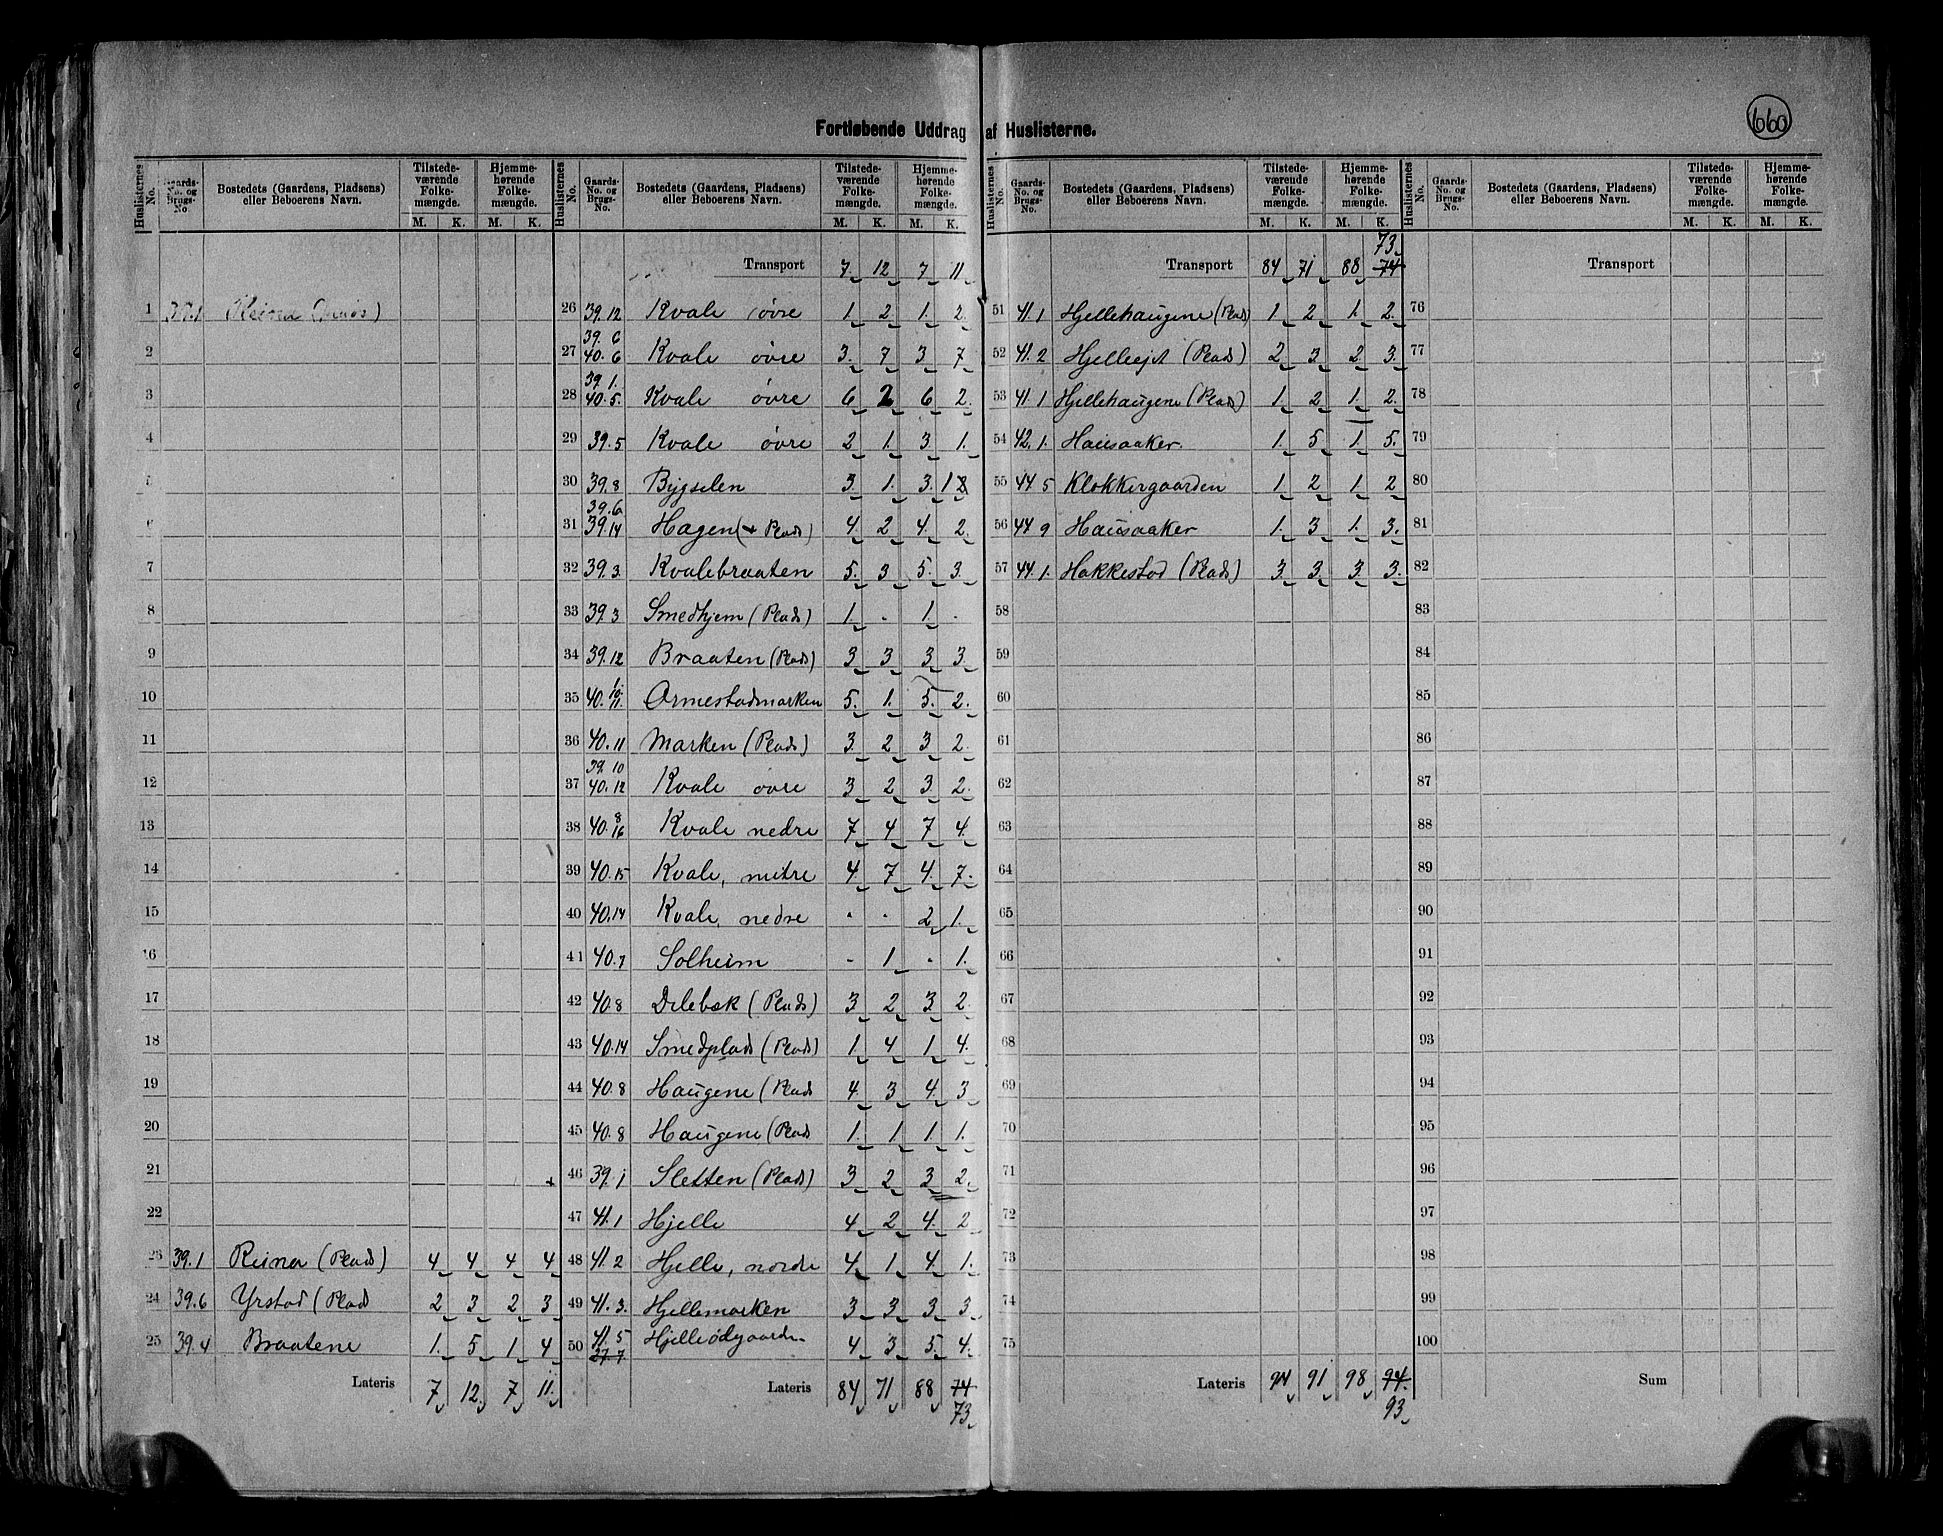 660
Fortløbende Uddrag af Huslisterne.
Huslisternes No. Gaards-No. og Brugs-No. Bostedets (Gaardens, Pladsens) eller Beboerens Navn. Tilstedeværende Folkemængde. M. K. Hjemmehørende Folkemængde. M. K.
1 39.1
2
3
4
5
6
7
8
9
10
11
12
13
14
15
16
17
18
19
20
21
22
23 39.1 Reina (Plads) 4 4 4 4
24 39.6 Yrstad (Plad 2 3 2 3
25 39.4 Braatene 1. 5 1 4
Lateris 7 12. 7 11.
Huslisternes No. Gaards-No. og Brugs-No. Bostedets (Gaardens, Pladsens) eller Beboerens Navn. Tilstedeværende Folkemængde. M. K. Hjemmehørende Folkemængde. M. K.
Transport 7. 12 7 11
26 39.12 Kvale øvre 1. 2 1. 2.
27 39.6 40.6 Kvale øvre 3. 7 3 7
28 39.1. 40.5. Kvale øvre 6 2 6 2.
29 39.5 Kvale øvre 2 1. 3. 1.
30 39.8 Bygselen 3. 1. 3. 1 2
31 39.6 39.14 Hagen (+ Plads) 4 2 4. 2.
32 39.3. Kvalebraaten 5. 3 5. 3.
33 39.3 Smedhjem (Plads) 1. - 1. -
34 39.12 Braaten (Plads) 3 3 3 3.
35 40.10. 11. Ormestadmarken 5. 1. 5. 2.
36 40.11 Marken (Plads) 3. 2 3 2.
37 39.10 40.12 Kvale øvre 3 2 3 2.
38 40.8 16 Kvale nedre 7 4 7 4.
39 40.15 Kvale, mitre 4. 7 4. 7.
40 40.14 Kvale, nedre - - 2 1.
41 40.7 Solheim - 1 - 1.
42 40.8 Delebæk (Plads) 3 2 3 2.
43 40.14 Smedplads (Plads) 1. 4 1 4.
44 40.8 Haugene (Plads 4. 3 4. 3
45 40.8 Haugene (Plads 1. 1 1. 1.
46 39.1 Sletten (Plads) 3 2 3 2.
47 41.1 Hjelle 4 2 4. 2
48 41.2 Hjelle, nordre 4. 1 4. 1.
49 41.3. Hjellemarken 3 3 3 3.
50 41.5 27.7 Hjelleødegaarden 4 3 5. 4.
Lateris 84 71 88 74
73
Huslisternes No. Gaards-No. og Brugs-No. Bostedets (Gaardens, Pladsens) eller Beboerens Navn. Tilstedeværende Folkemængde. M. K. Hjemmehørende Folkemængde. M. K.
73
Transport 84 71 88 74
51 41.1 Hjellehaugene (Plads) 1. 2 1. 2.
52 41.2 (Plads) 2 3 2. 3.
53 41.1 Hjellehaugene (Plads) 1. 2 1. 2.
54 42.1. Hausaaker. 1. 5 1. 5.
55 44.5 Klokkergaarden 1. 2 1. 2
56 44.9 Hausaaker 1. 3 1. 3.
57 44.1. Hakkestad (Plads) 3 3 3. 3.
58
59
60
61
62
63
64
65
66
67
68
69
70
71
72
73
74
75
Lateris 94 91 98 94.
93
Huslisternes No. Gaards-No. og Brugs-No. Bostedets (Gaardens, Pladsens) eller Beboerens Navn. Tilstedeværende Folkemængde. M. K. Hjemmehørende Folkemængde. M. K.
Transport
76
77
78
79
80
81
82
83
84
85
86
87
88
89
90
91
92
93
94
95
96
97
98
99
100
Sum